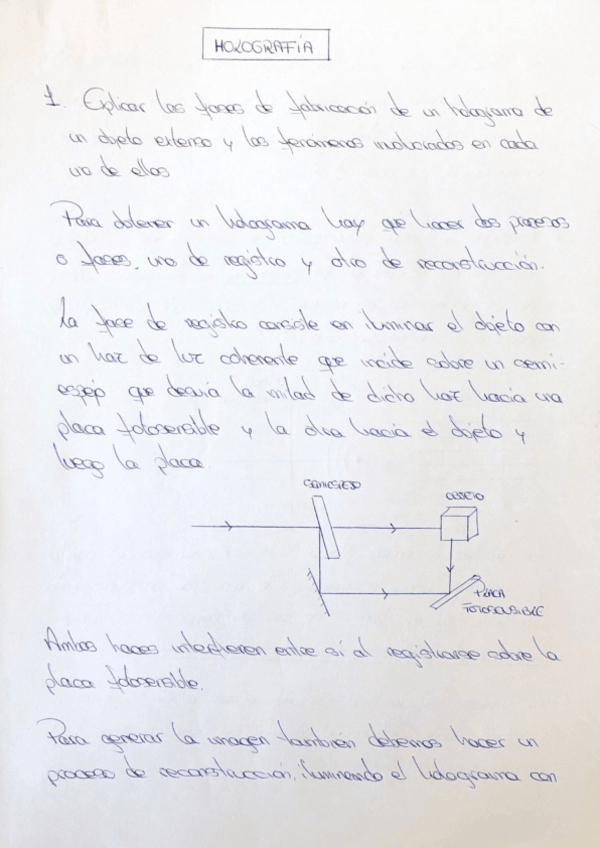 HOLOGRAFÍA
1. Explicar las fases de fabricación de un holograma de
un objeto extenso y los fenómenos involucrados en cada
una de ellas
Para obtener un holograma hay que hacer dos procesos
o fases, uno de registro y otro de reconstrucción.
La fase de registro consiste en iluminar el objeto con
un haz de luz coherente que incide sobre un semi-
espejo que desvía la mitad de dicho haz hacia una
placa fotosensible y la otra hacia el objeto y
luego la placa.
SEMIESPEJO
OBJETO
PLACA
FOTOSENSIBLE
Ambos haces interfieren entre sí al registrarse sobre la
placa fotosensible.
Para generar la imagen también debemos hacer un
proceso de reconstrucción, iluminando el holograma con